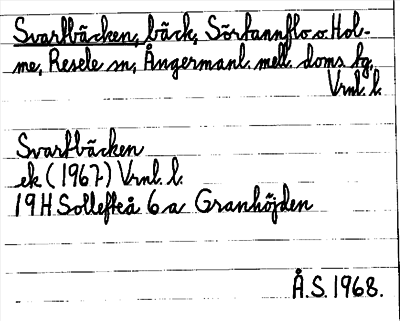 Svartbäcken, bäck, Sörtannflo o. Hol-
me, Resele sn, Ångermanl. mell. doms fg.
Vrnl. l.
Svartbäcken
ek (1967) Vrnl. l.
19H Sollefteå 6a Granhöjden
Å.S. 1968.